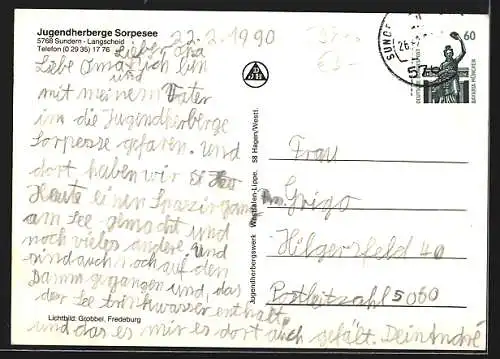 Jugendherberge Sorpesee
5768 Sundern - Langscheid
Telefon (0 29 35) 17 76
22.2.1990
Lieber Opa
Liebe Oma ich bin
und
mit meinem Vater
im die Jugendherberge
Sorpesse gefaren. Und
dort haben wir
Heute einen Spaziergang
am See gemacht und
noch vieles andere Und
sind auch noch auf den
Damm gegangen und, das
der See trinkwasser enthalt,
und das es mir es dort auch gefält. Dein André
Lichtbild: Grobbel, Fredeburg
Jugendherbergswerk Westfalen-Lippe, 58 Hagen/Westf.
DJH
SUNDE
26.
57
60
DEUTSCHE BUNDESPOST
BAVARIA MÜNCHEN
Frau
Grigo
Hilgersfeld 40
Postleitzahl 5060